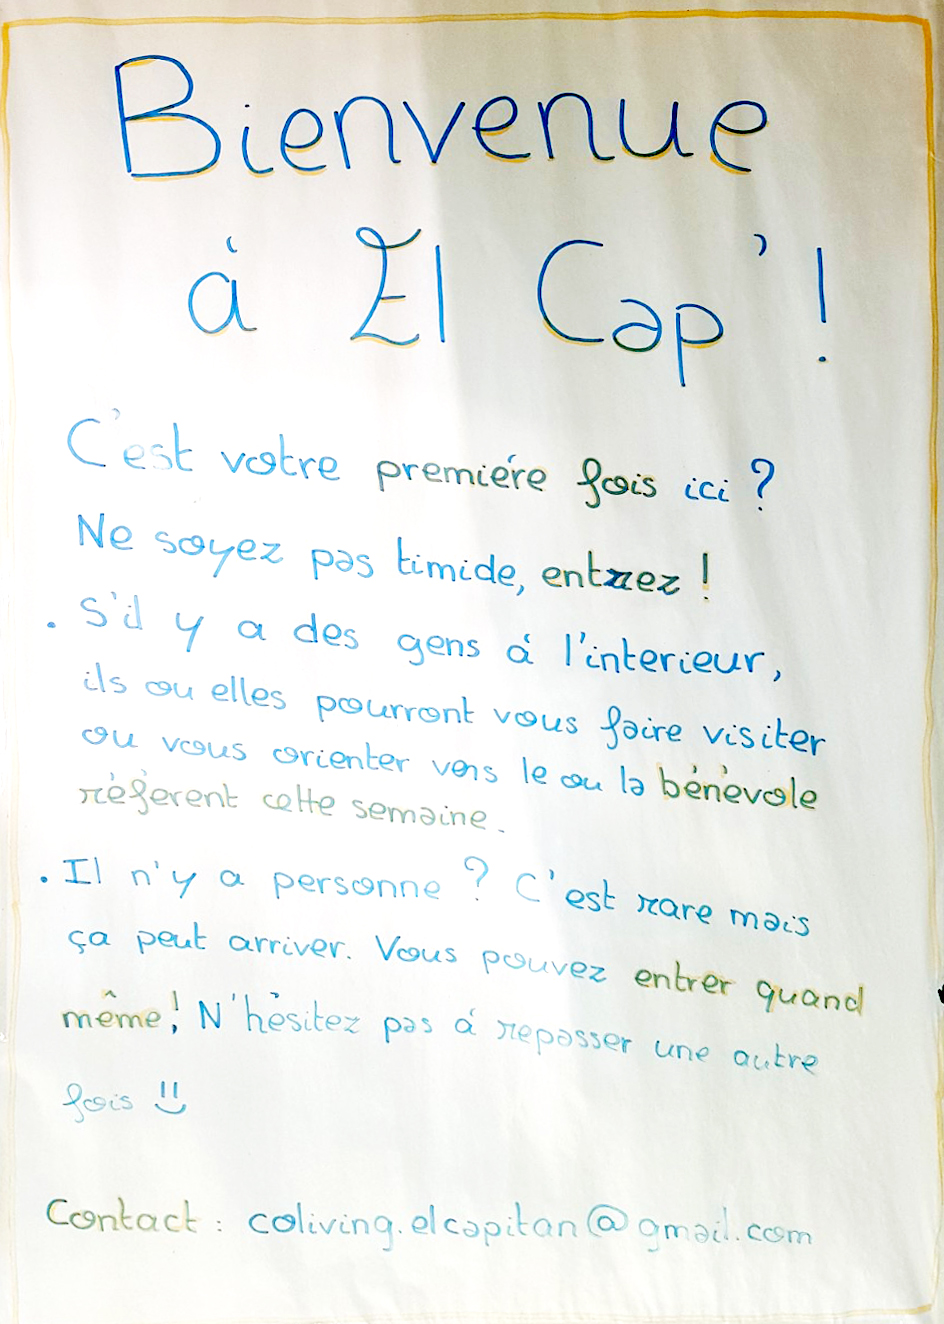 Bienvenue
à El Cap'!
C'est votre première fois ici ?
Ne soyez pas timide, entrez !
. S'il y a des gens à l'interieur,
ils ou elles pourront vous faire visiter
ou vous orienter vers le ou la bénévole
référent cette semaine.
. Il n'y a personne ? C'est rare mais
ça peut arriver. Vous pouvez entrer quand
même! N'hésitez pas à repasser une autre
fois :)
Contact : coliving.elcapitan@gmail.com